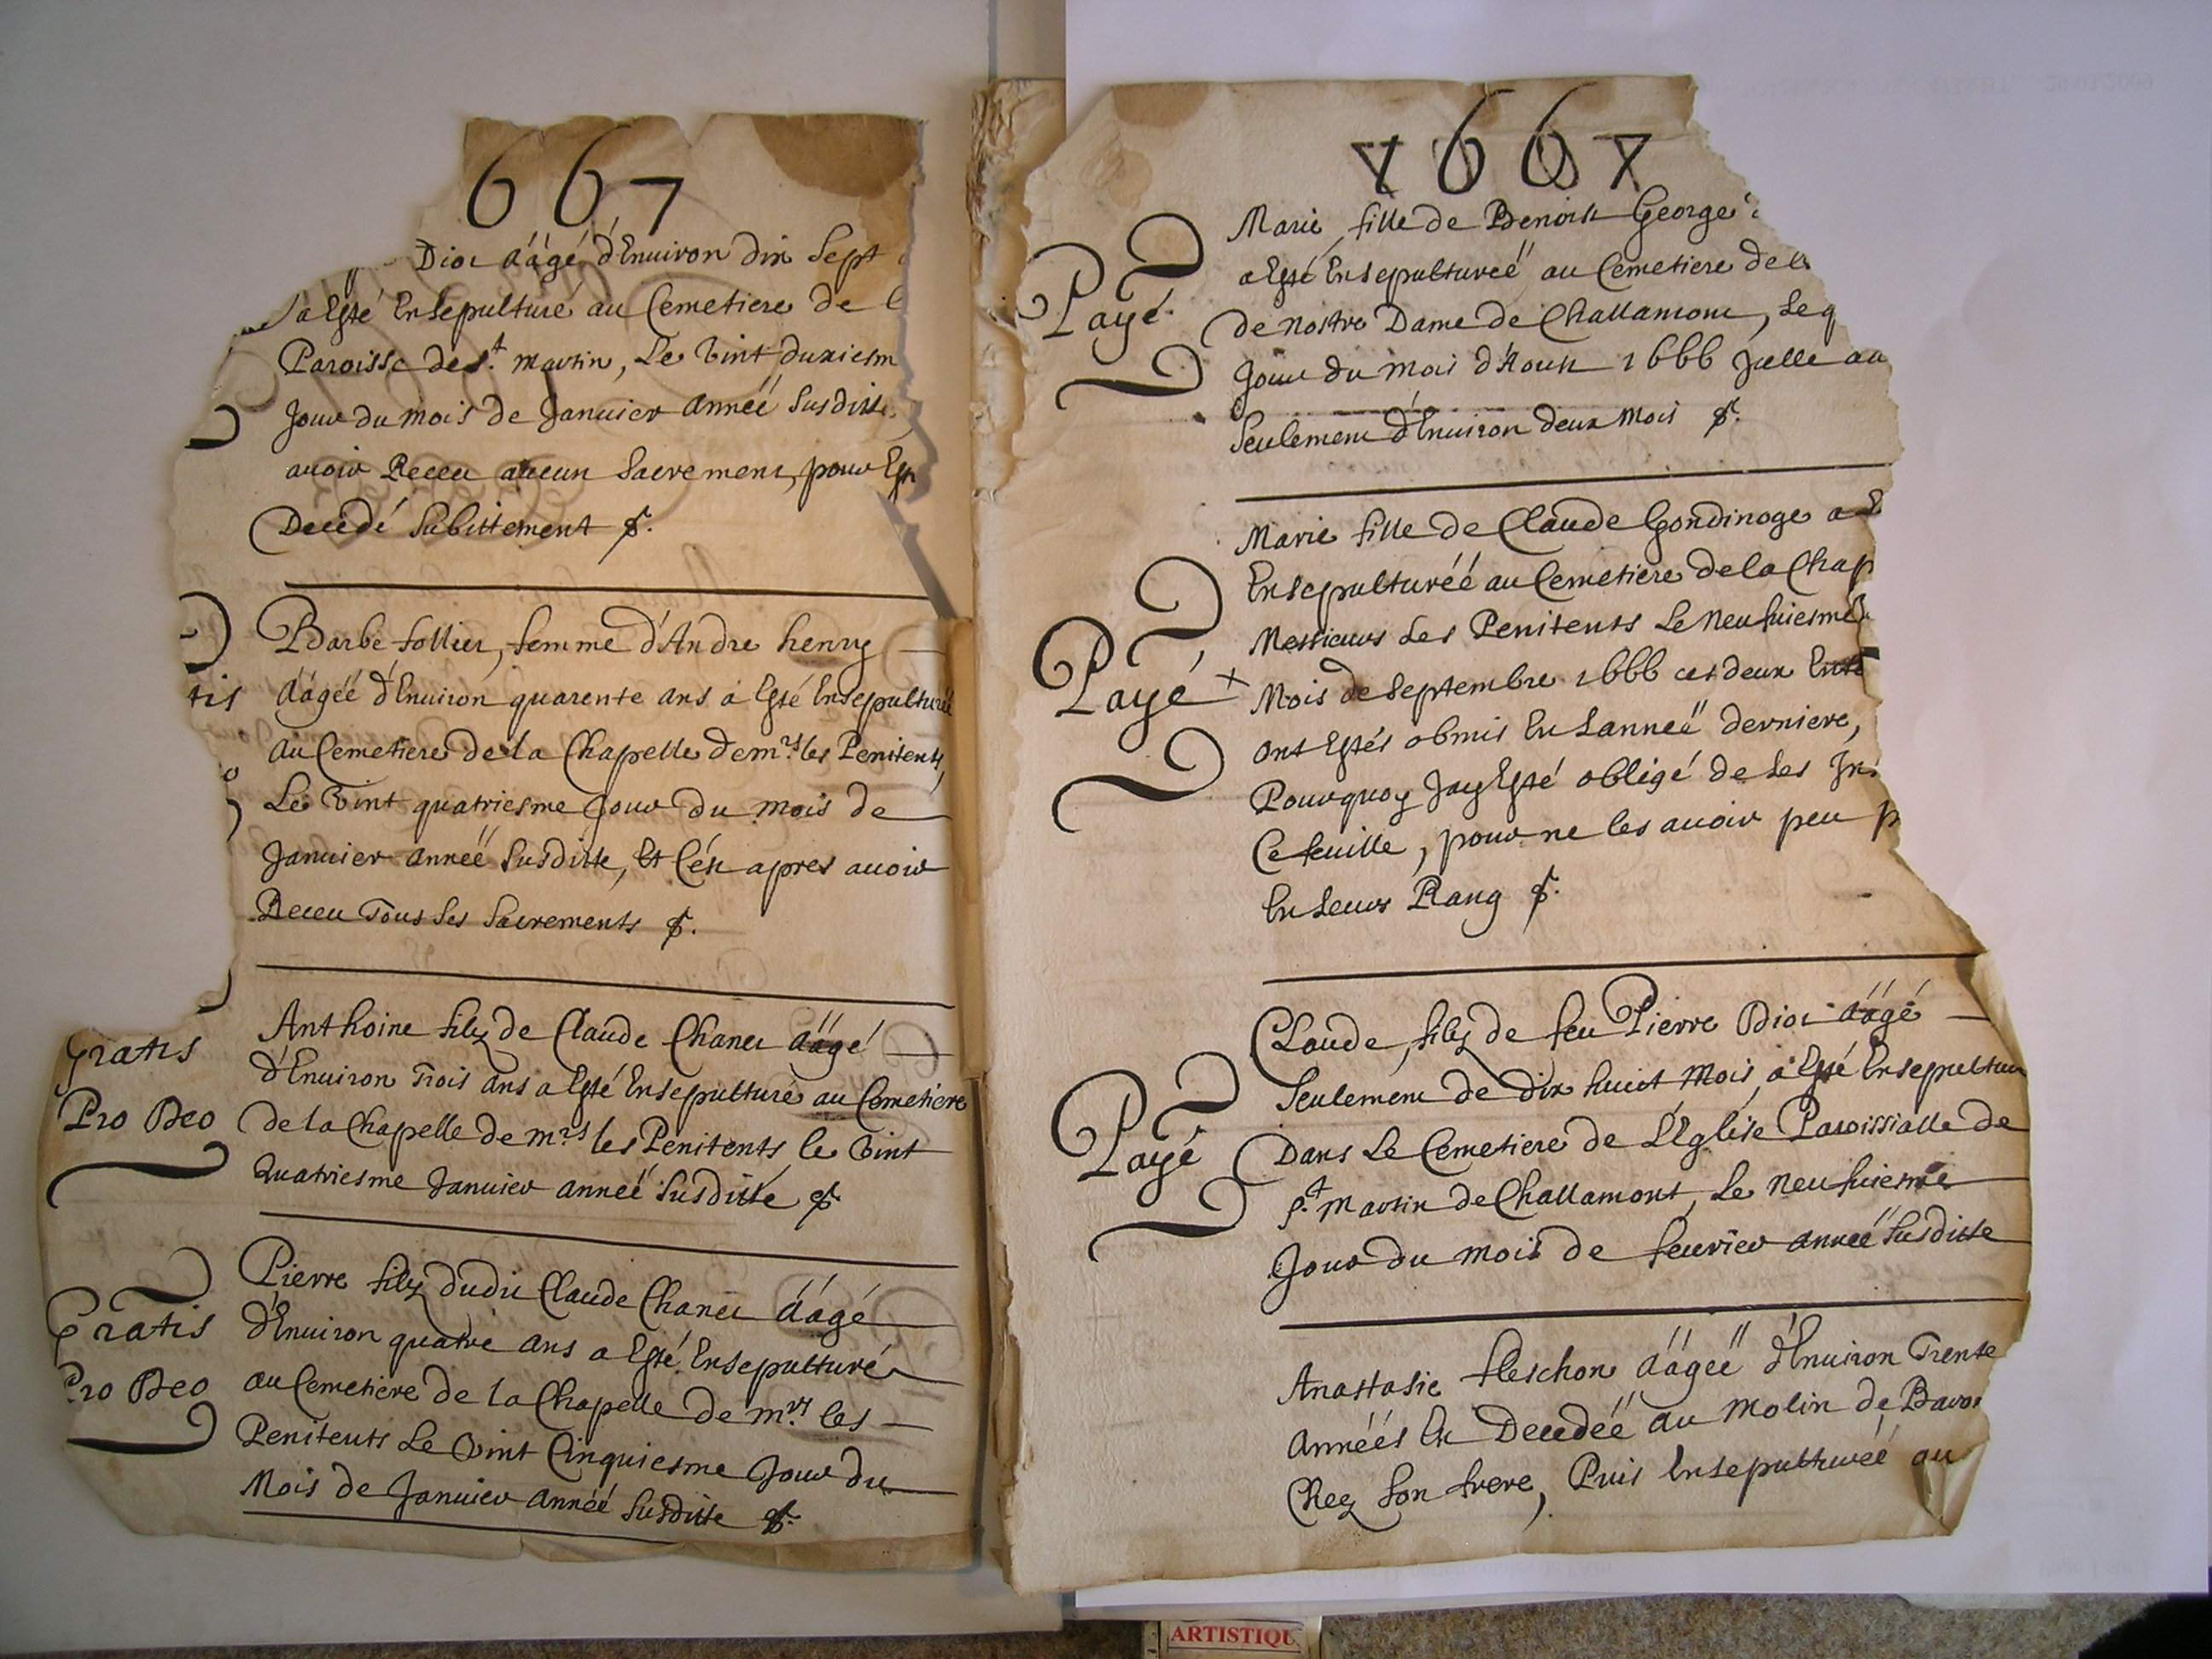 667
Dior ââgé d'Enuiron dix sept
a Esté Ensepulturé au Cemetiere de l
Paroisse de St. Martin, Le Vint duxiesm
Jour du mois de Januier anneë Susditte
auoir Receu aucun Sacrement, pour Est
Decedé Subittement
Barbe follier, femme d'Andre henry
ââgeë d'Enuiron quarente ans a Esté Ensepulturée
tis
au Cemetiere de la Chapelle de mrs. les Penitents,
Le Vint quatriesme Jour du mois de
Januier anneë Susditte, Et C'est apres auoir
Receu Tous Les Sacrements
Anthoine filz de Claude Chanet ââgé
Gratis
d'Enuiron Trois ans a Esté Ensepulturé au Cemetiere
Pro Deo
de la Chapelle de mrs les Penitents, le Vint
Quatriesme Januier anneë Susditte
Pierre filz dudit Claude Chanet ââgé
Gratis
d'Enuiron quatre ans a Esté Ensepulturé
Pro Deo
au Cemetiere de la Chapelle de mrs. les
Penitents Le Vint Cinquiesme Jour du
Mois de Januier anneë Susditte
1667
Marie, fille de Benoist George
a Esté Ensepultureë au Cemetiere de
Payé
de nostre Dame de Challamont, Le q
Jour du mois d'Aoust 1666 Jcelle
Seulement d'Enuiron deux Mois
Marie fille de Claude Gondinoge a E
Ensepulturéé au Cemetiere de la Chap
Messieurs Les Penitents Le neufuiesme
Payé
Mois de Septembre 1666 ces deux
ont Estés obmis En Lanneë derniere,
Pourquoy Jay Esté obligé de Les
Ce feuille, pour ne les auoir peu p
En Leurs Rang
Claude, filz de feu Pierre Dior ââgé
Seulement de Dix huict Mois, a Esté Ensepultur
Dans Le Cemetiere de L'Eglise Paroissialle de
Payé
St. Martin de Challamont, Le neufuiesme
Jour du mois de feurier anneë Susditte
Anastasie fleschon ââgeë d'Enuiron Trente
Annéés Est Decedéë au Molin de
Chez Son frere, Puis Ensepulturéé au
ARTISTIQU